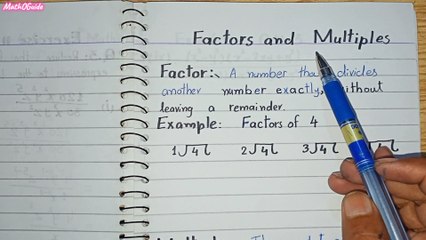 MathOGuide
Factors and Multiples
Factor:. A number that divides
another number exactly, without
leaving a remainder.
Example: Factors of 4
1√4 2√4 3√4